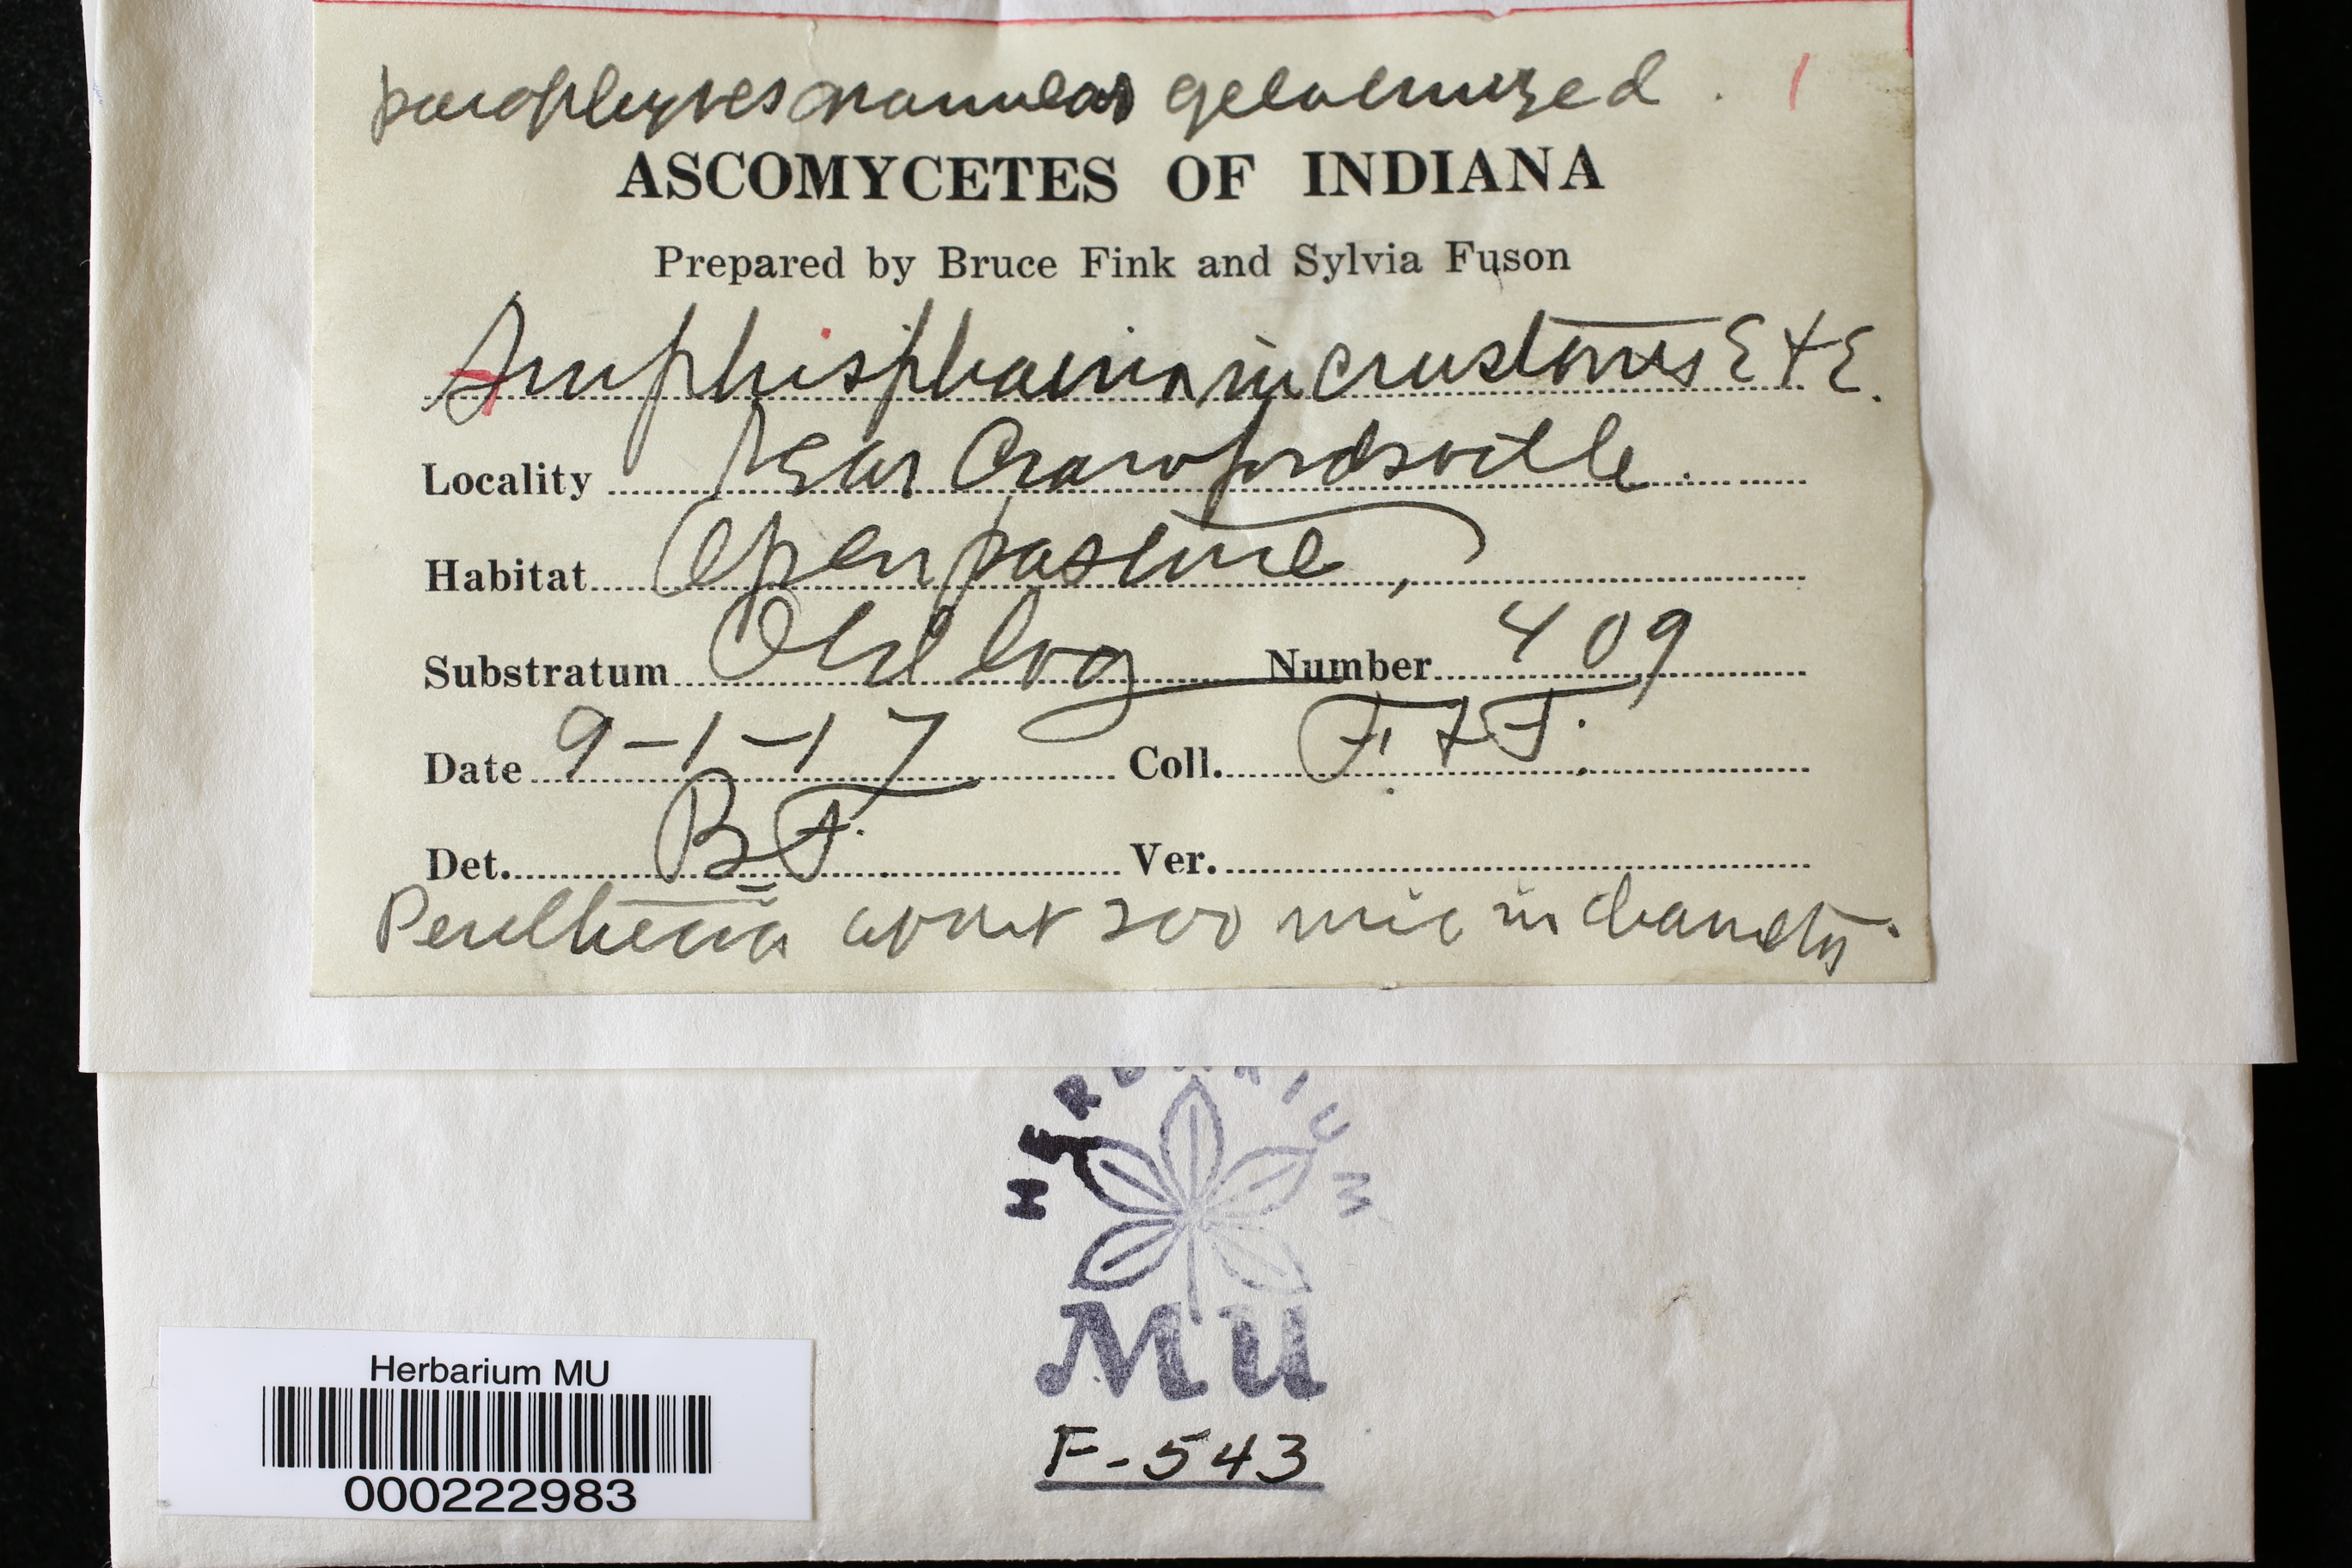 paraphyses granular gelatinized.
ASCOMYCETES OF INDIANA
Prepared by Bruce Fink and Sylvia Fuson
Amphisphaeria incrustans E & E.
Locality Near Crawfordsville.
Habitat Open pasture,
Substratum Old log Number 409
Date 9-1-17 Coll. F.
Det. B.F. Ver.
Perithecia about 200 mic in diameter.
HERBARIUM
MU
F-543
Herbarium MU
000222983